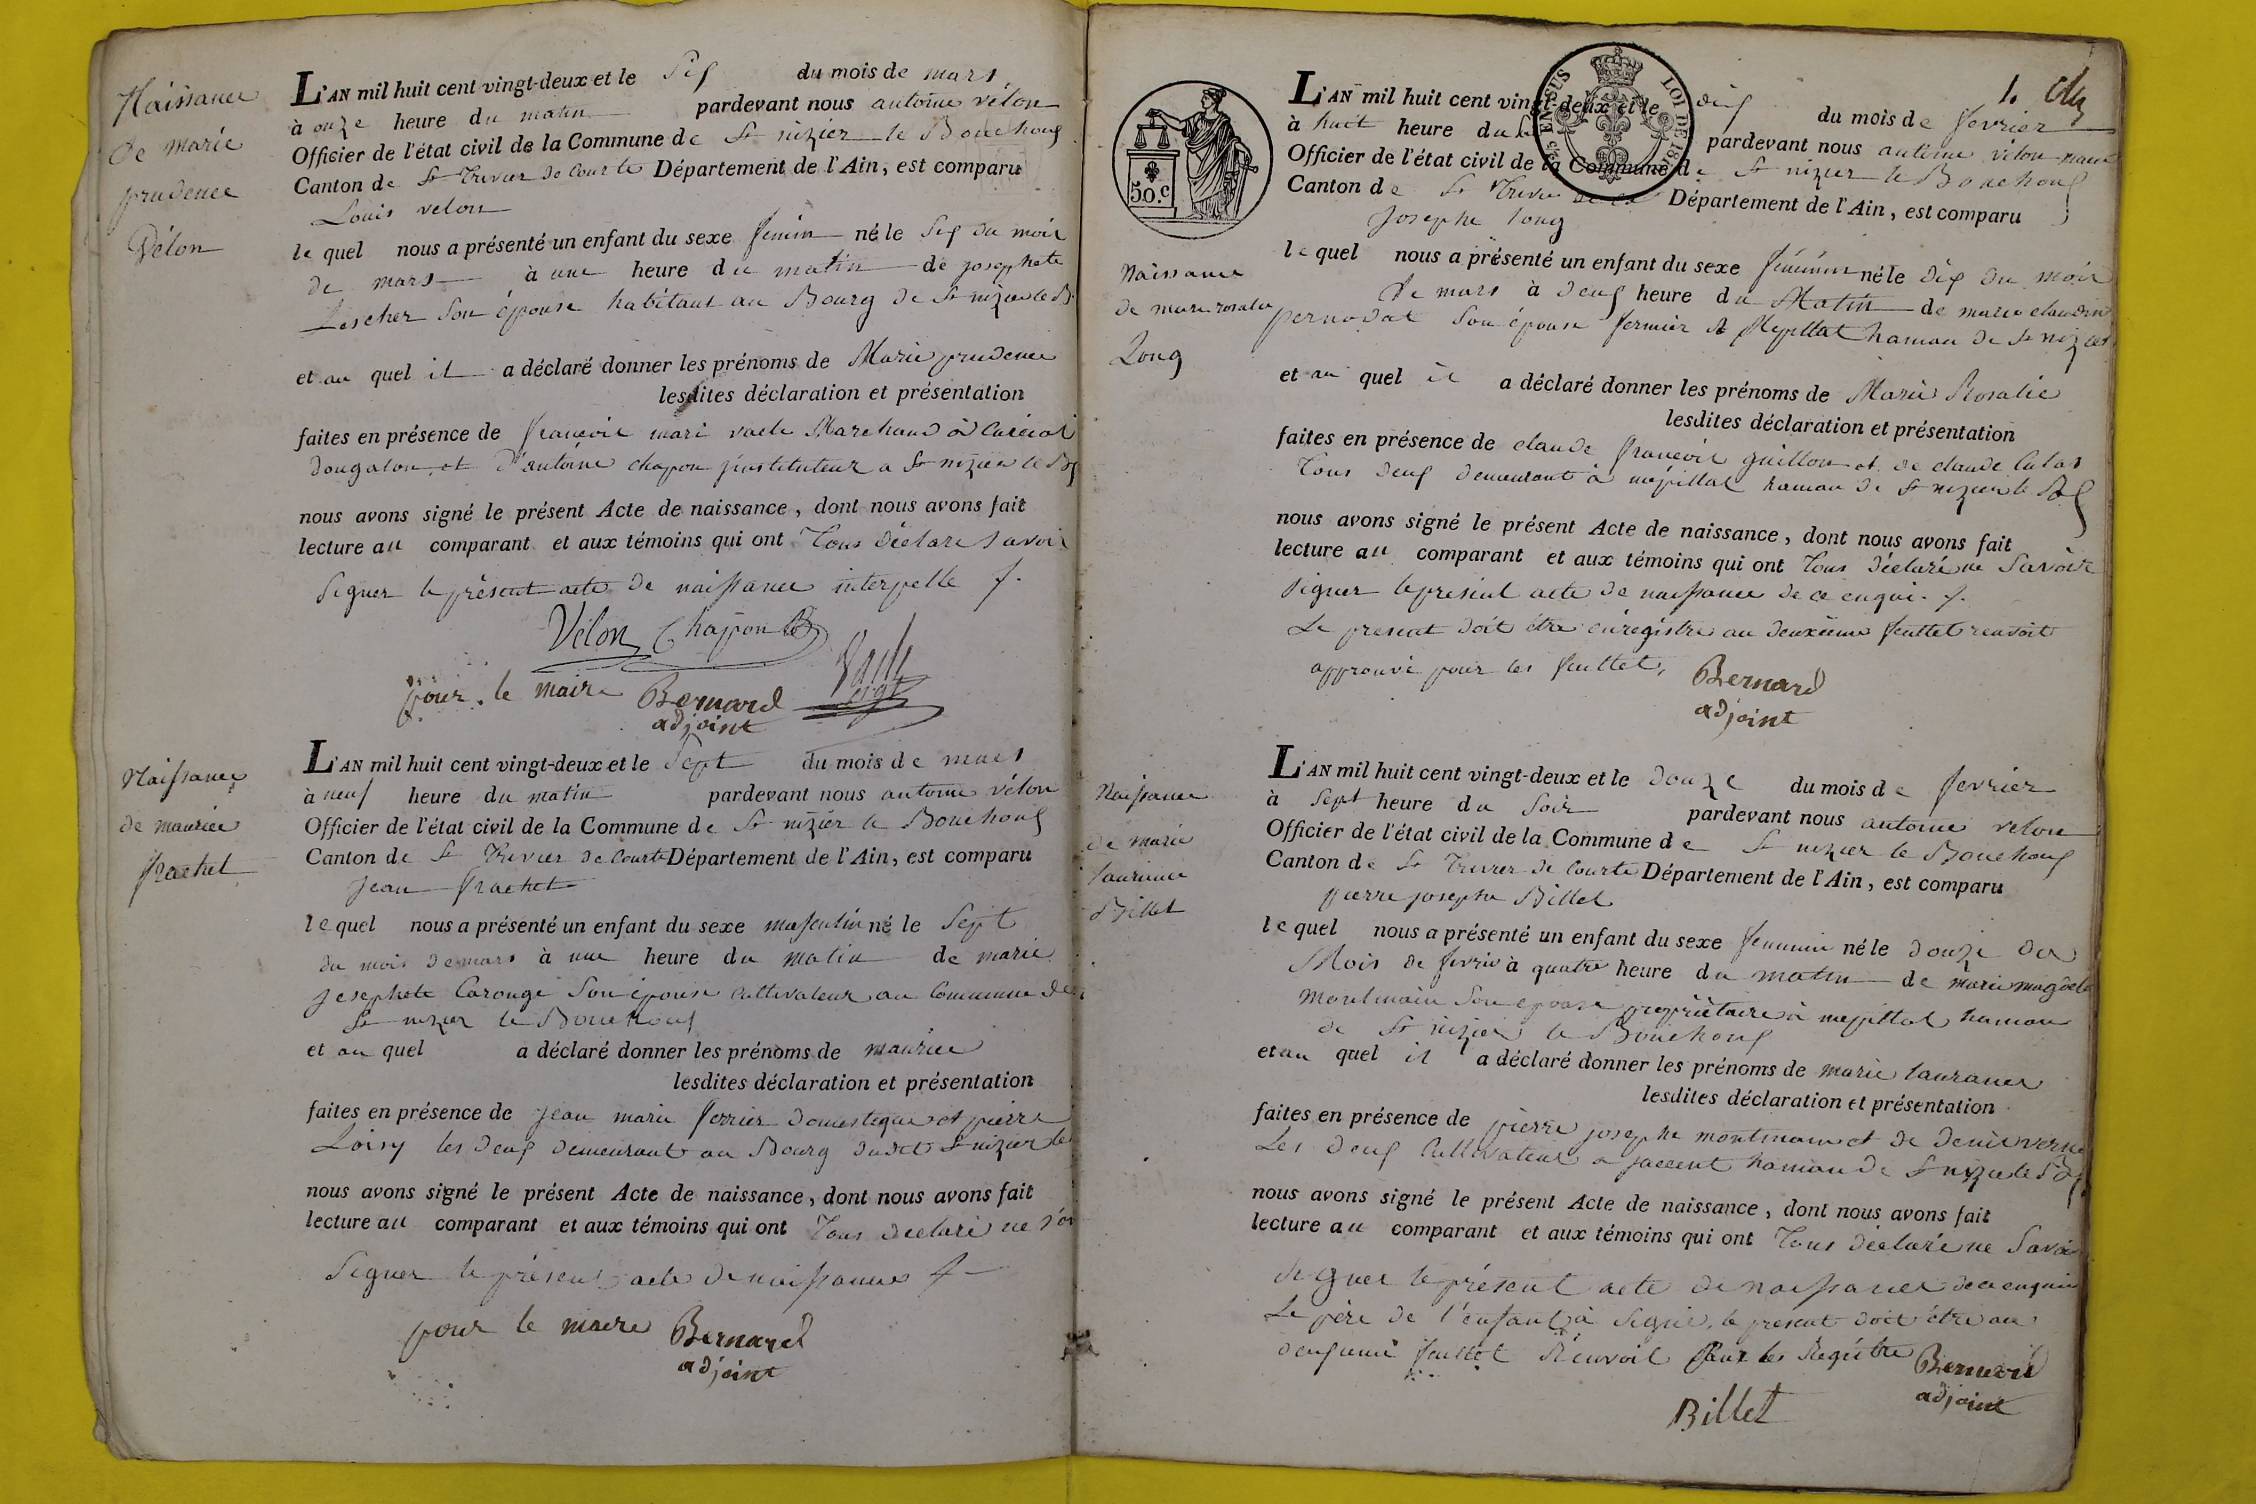 Naissance
de marie
prudence
Vélon
L'AN mil huit cent vingt-deux et le Six du mois de mars
à onze heure du matin pardevant nous antoine vélon
Officier de l'état civil de la Commune de St nizier le Bouchoux
Canton de St Trivier de Courte Département de l'Ain, est comparu
Louis velon
le quel nous a présenté un enfant du sexe féminin né le Six du mois
de mars à une heure du matin de josephete
Lescher Son épouse habitant au Bourg de St nizier le B.
et au quel il a déclaré donner les prénoms de Marie prudence
lesdites déclaration et présentation
faites en présence de françois mari vaele Marchand à Curciat
dongalon et d'antoine chapon jinstituteur a St nizier le Bx
nous avons signé le présent Acte de naissance, dont nous avons fait
lecture au comparant et aux témoins qui ont Tous déclare Savoir
Signer le présent acte de naissance interpelle
Vélon Chapon
pour le maire Bernard
adjoint
Naissance
de maurice
frachet
L'AN mil huit cent vingt-deux et le Sept du mois de mars
à neuf heure du matin pardevant nous antoine vélon
Officier de l'état civil de la Commune de St nizier le Bouchoux
Canton de St Trivier de Courte Département de l'Ain, est comparu
Jean frachet
le quel nous a présenté un enfant du sexe masculin né le Sept
du mois de mars à une heure du matin de marie
josephete Carouge Son épouse cultivateur au Commune de
St nizier le Bouchoux
et au quel a déclaré donner les prénoms de maurice
lesdites déclaration et présentation
faites en présence de jean marie ferrier domestique et pierre
Loisy les deux demeurant au Bourg dudit St nizier le
nous avons signé le présent Acte de naissance, dont nous avons fait
lecture au comparant et aux témoins qui ont Tous declaré ne
Signer le présent acte de naissance
pour le maire Bernard
adjoint
1.
CENSUS LOI DE
50.c
L'AN mil huit cent vingt-deux et le dix du mois de fevrier
à huit heure du pardevant nous antoine vélon
Officier de l'état civil de la Commune de St nizier le Bouchoux
Canton de St Trivier de Département de l'Ain, est comparu
Josephe long
Naissance
de marie rosalie
Long
le quel nous a présenté un enfant du sexe féminin né le dix du mois
de mars à deux heure du Matin de marie claudin
pernodat Son épouse fermier à Mepillat hamau de St nizier
et au quel il a déclaré donner les prénoms de Marie Rosalie
lesdites déclaration et présentation
faites en présence de claude françois guillon et de claude
Tous deux demeurant à mépillat hamau de St nizier le Bx
nous avons signé le présent Acte de naissance, dont nous avons fait
lecture au comparant et aux témoins qui ont Tous déclaré ne Savoir
Signer le present acte de naissance de ce enqui.
Le present doit être enregistre au deuxieme feuillet renvoit
approuvé pour les feuillet,
Bernard
adjoint
Naissance
de marie
laurance
Billet
L'AN mil huit cent vingt-deux et le douze du mois de fevrier
à Sept heure du Soir pardevant nous antoine velon
Officier de l'état civil de la Commune de St nizier le Bouchoux
Canton de St Trivier de Courte Département de l'Ain, est comparu
pierre josephe Billet
le quel nous a présenté un enfant du sexe feminin né le douze du
Mois de fevrie à quatre heure du matin de marie
montmain Son epouse propriétaire à mepillat hamau
de St nizier le Bouchoux
et au quel il a déclaré donner les prénoms de marie laurance
lesdites déclaration et présentation
faites en présence de pierre josephe montmain et de denis
Les deux Cultivateur a hamau de St nizier le Bx
nous avons signé le présent Acte de naissance, dont nous avons fait
lecture au comparant et aux témoins qui ont Tous déclaré ne Savoir
Signer le présent acte de naissance de ce enquis
Le père de l'enfant à Signé, le present doit être au
deuxieme feuillet Renvoit Pour les Registre Bernard
adjoint
Billet